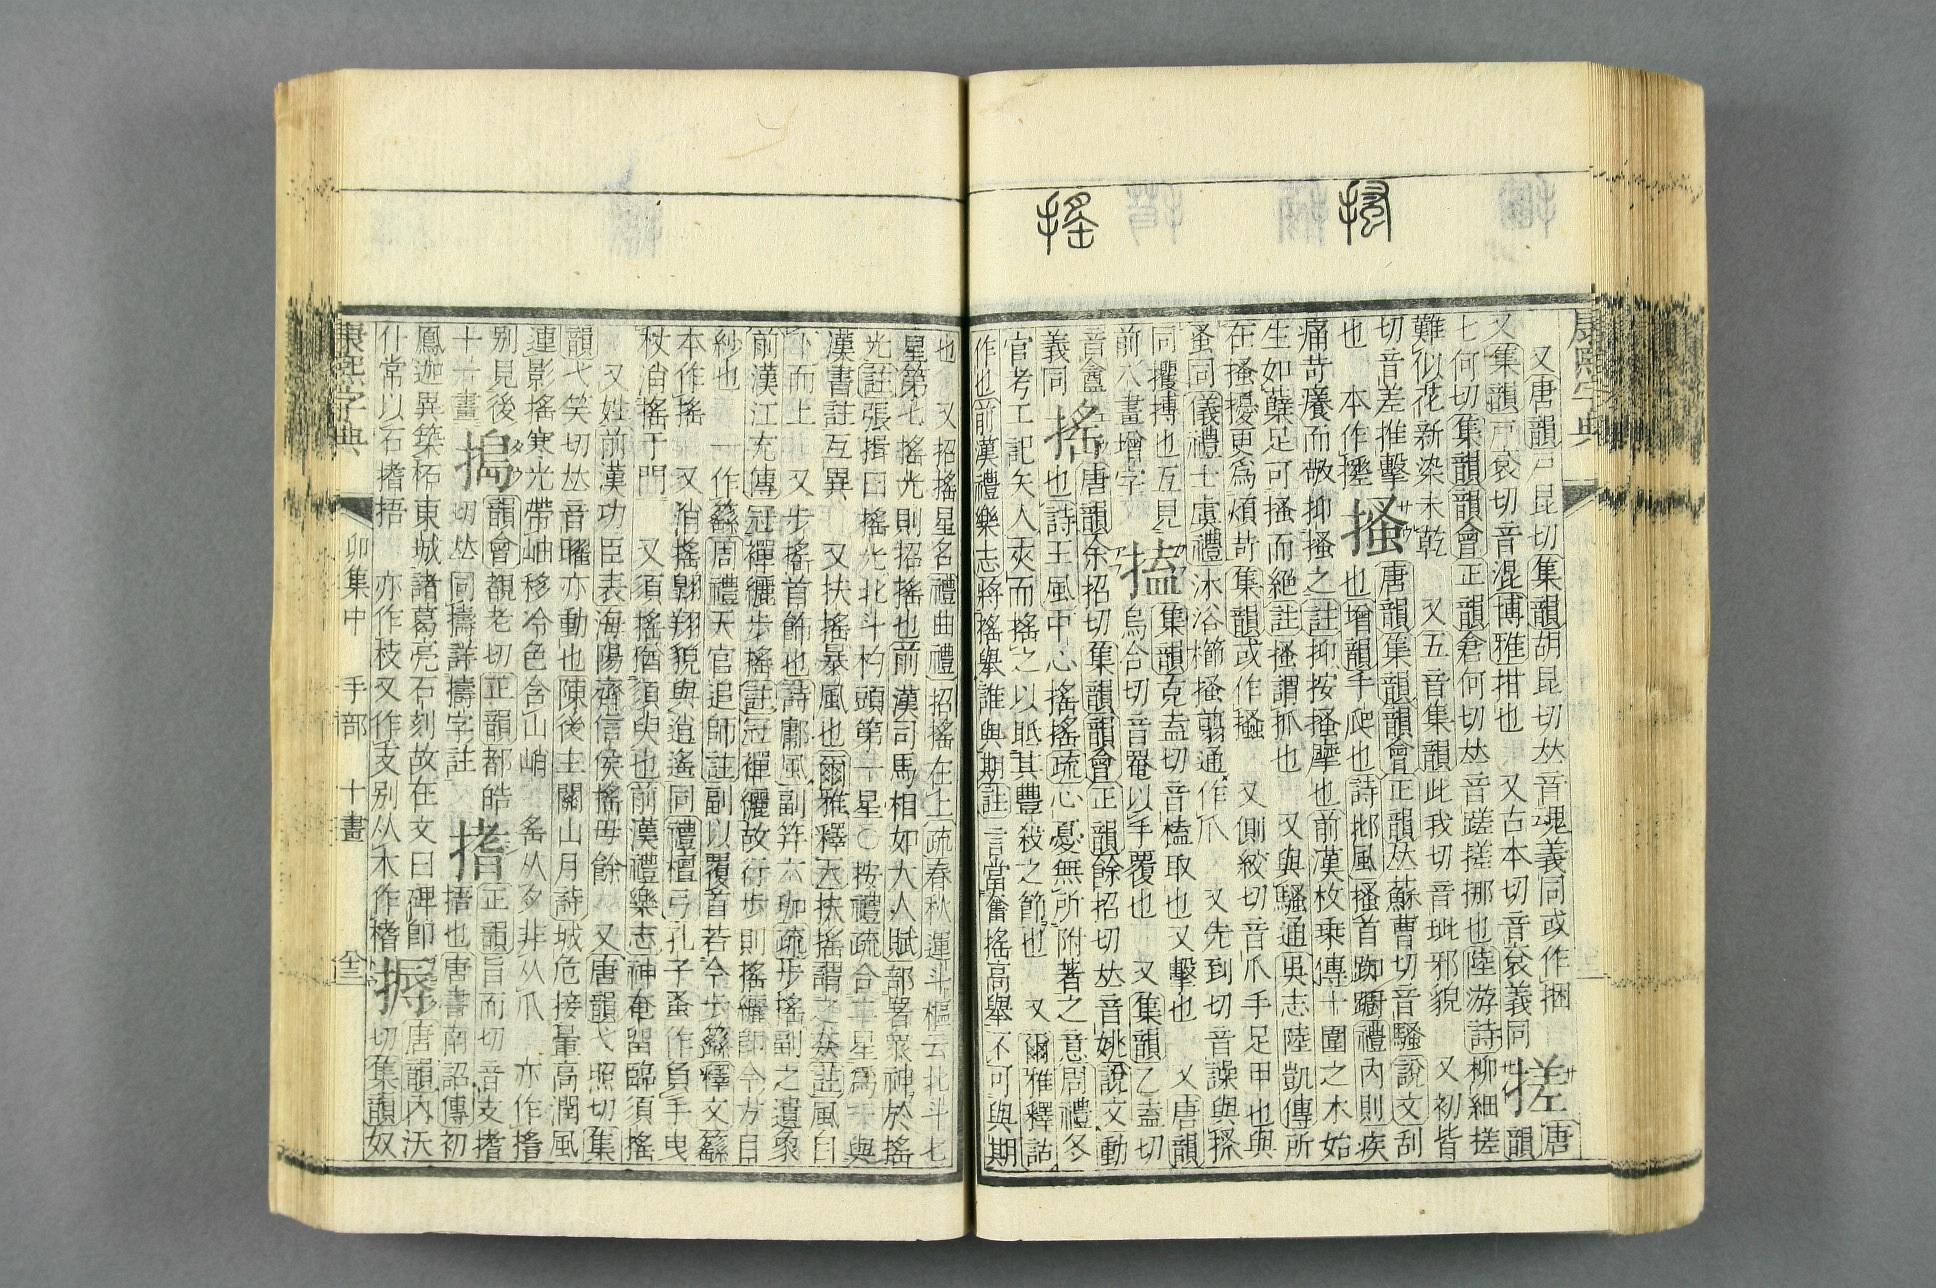 搔 搖
康熙字典
又唐韻戸昆切集韻胡昆切𠀤音魂義同或作捆 搓 唐
又集韻戸袞切音混博雅拑也 又古本切音袞義同 韻
七何切集韻韻會正韻倉何切𠀤音蹉搓挪也陸游詩柳細搓
難似花新染未乾 又五音集韻此我切音瑳邪貌 又初皆
切音差推擊 搔 唐韻集韻韻會正韻𠀤蘇曹切音騷說文刮
也 本作 也增韻手爬也詩邶風搔首踟躕禮內則疾
痛苛癢而敬抑搔之註抑按搔摩也前漢枚乘傳十圍之木始
生如蘖足可搔而絕註搔謂抓也 又與騷通吳志陸凱傳所
在搔擾更爲煩苛集韻或作 又側絞切音爪手足甲也與
蚤同儀禮士虞禮沐浴櫛搔翦通作爪 又先到切音譟與
同攫搏也互見 搕 集韻克盍切音榼取也又擊也 又唐韻
前八畫增字 烏合切音罨以手覆也 又集韻乙盍切
音盦 搖 唐韻余招切集韻韻會正韻餘招切𠀤音姚說文動
義同 也詩王風中心搖搖疏心憂無所附著之意周禮冬
官考工記矢人夾而搖之以眡其豐殺之節也 又爾雅釋詁
作也前漢禮樂志將搖舉誰與期註言當奮搖高舉不可與期
也 又招搖星名禮曲禮招搖在上疏春秋運斗樞云北斗七
星第七搖光則招搖也前漢司馬相如大人賦部署衆神於搖
光註張揖曰搖光北斗杓頭第一星○按禮疏合二星爲一與
漢書註互異 又扶搖暴風也爾雅釋天扶搖謂之猋註風自
下而上 又步搖首飾也詩鄘風副笄六珈疏步搖副之遺象
前漢江充傳冠襌纚步搖註冠襌纚故行步則搖纚卽今方目
紗也 一作繇周禮天官追師註副以覆首若今步繇釋文繇
本作搖 又消搖翺翔貌與逍遙同禮檀弓孔子蚤作負手曳
杖消搖于門 又須搖猶須臾也前漢禮樂志神奄留臨須搖
又姓前漢功臣表海陽齊信侯搖毋餘 又唐韻弋照切集
韻弋笑切𠀤音曜亦動也陳後主關山月詩城危接暈高澗風
連影搖寒光帶岫移冷色含山峭 䍃从夕非从爪 亦作揺
别見後 搗 韻會覩老切正韻都皓 搘 正韻旨而切音支搘
十一畫 切𠀤同擣詳擣字註 搢也唐書南詔傳初
鳳迦異築柘東城諸葛亮石刻故在文曰碑卽 搙 唐韻內沃
仆常以石搘捂 亦作枝又作支别从木作榰 切集韻奴
康熙字典 卯集中 手部 十畫